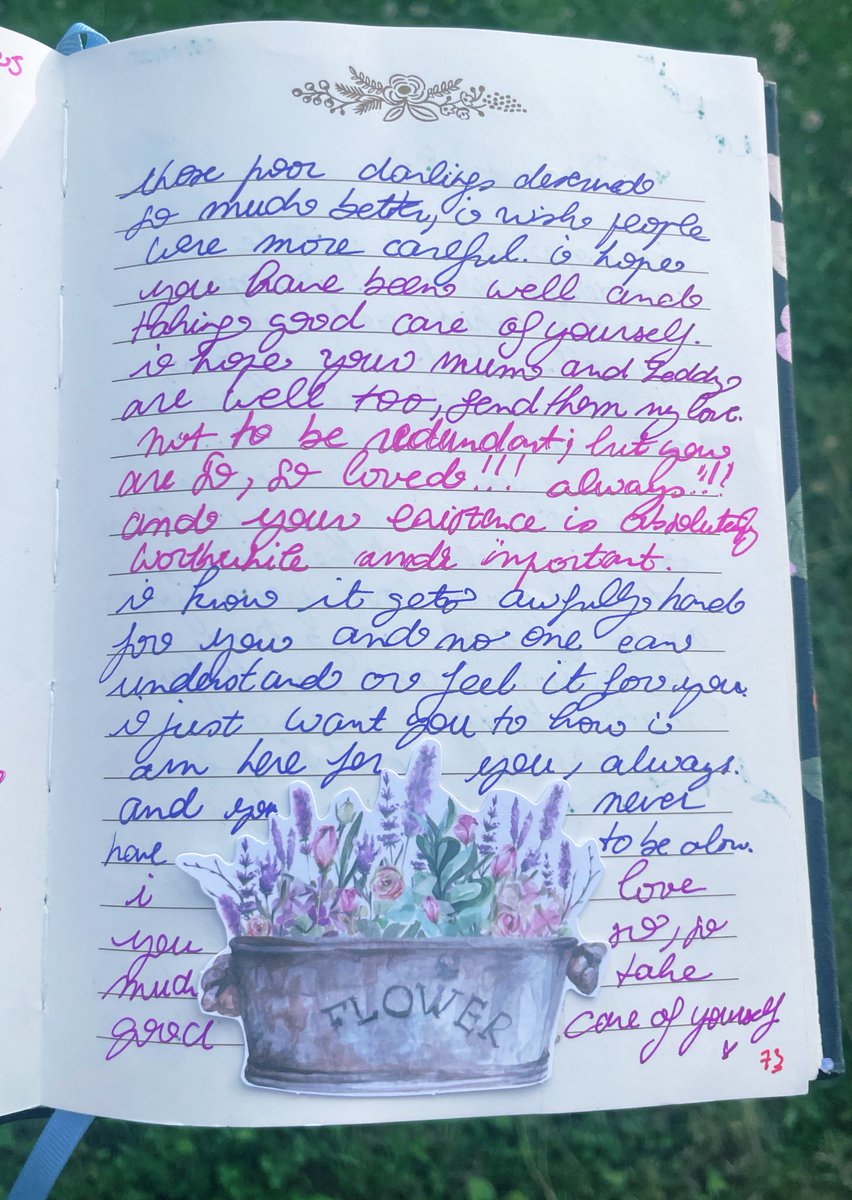 those poor darlings deserved
so much better, i wish people
were more careful. i hope
you have been well and
taking good care of yourself.
i hope your mum and Teddy
are well too, send them my love.
not to be redundant; but you
are so, so loved!!! always!!!
and your existence is absolutely
worthwhile and important.
i know it gets awfully hard
for you and no one can
understand or feel it for you.
i just want you to know i
am here for you, always.
and you never
have to be alone.
i love
you so, so
much take
good care of yourself
FLOWER
73